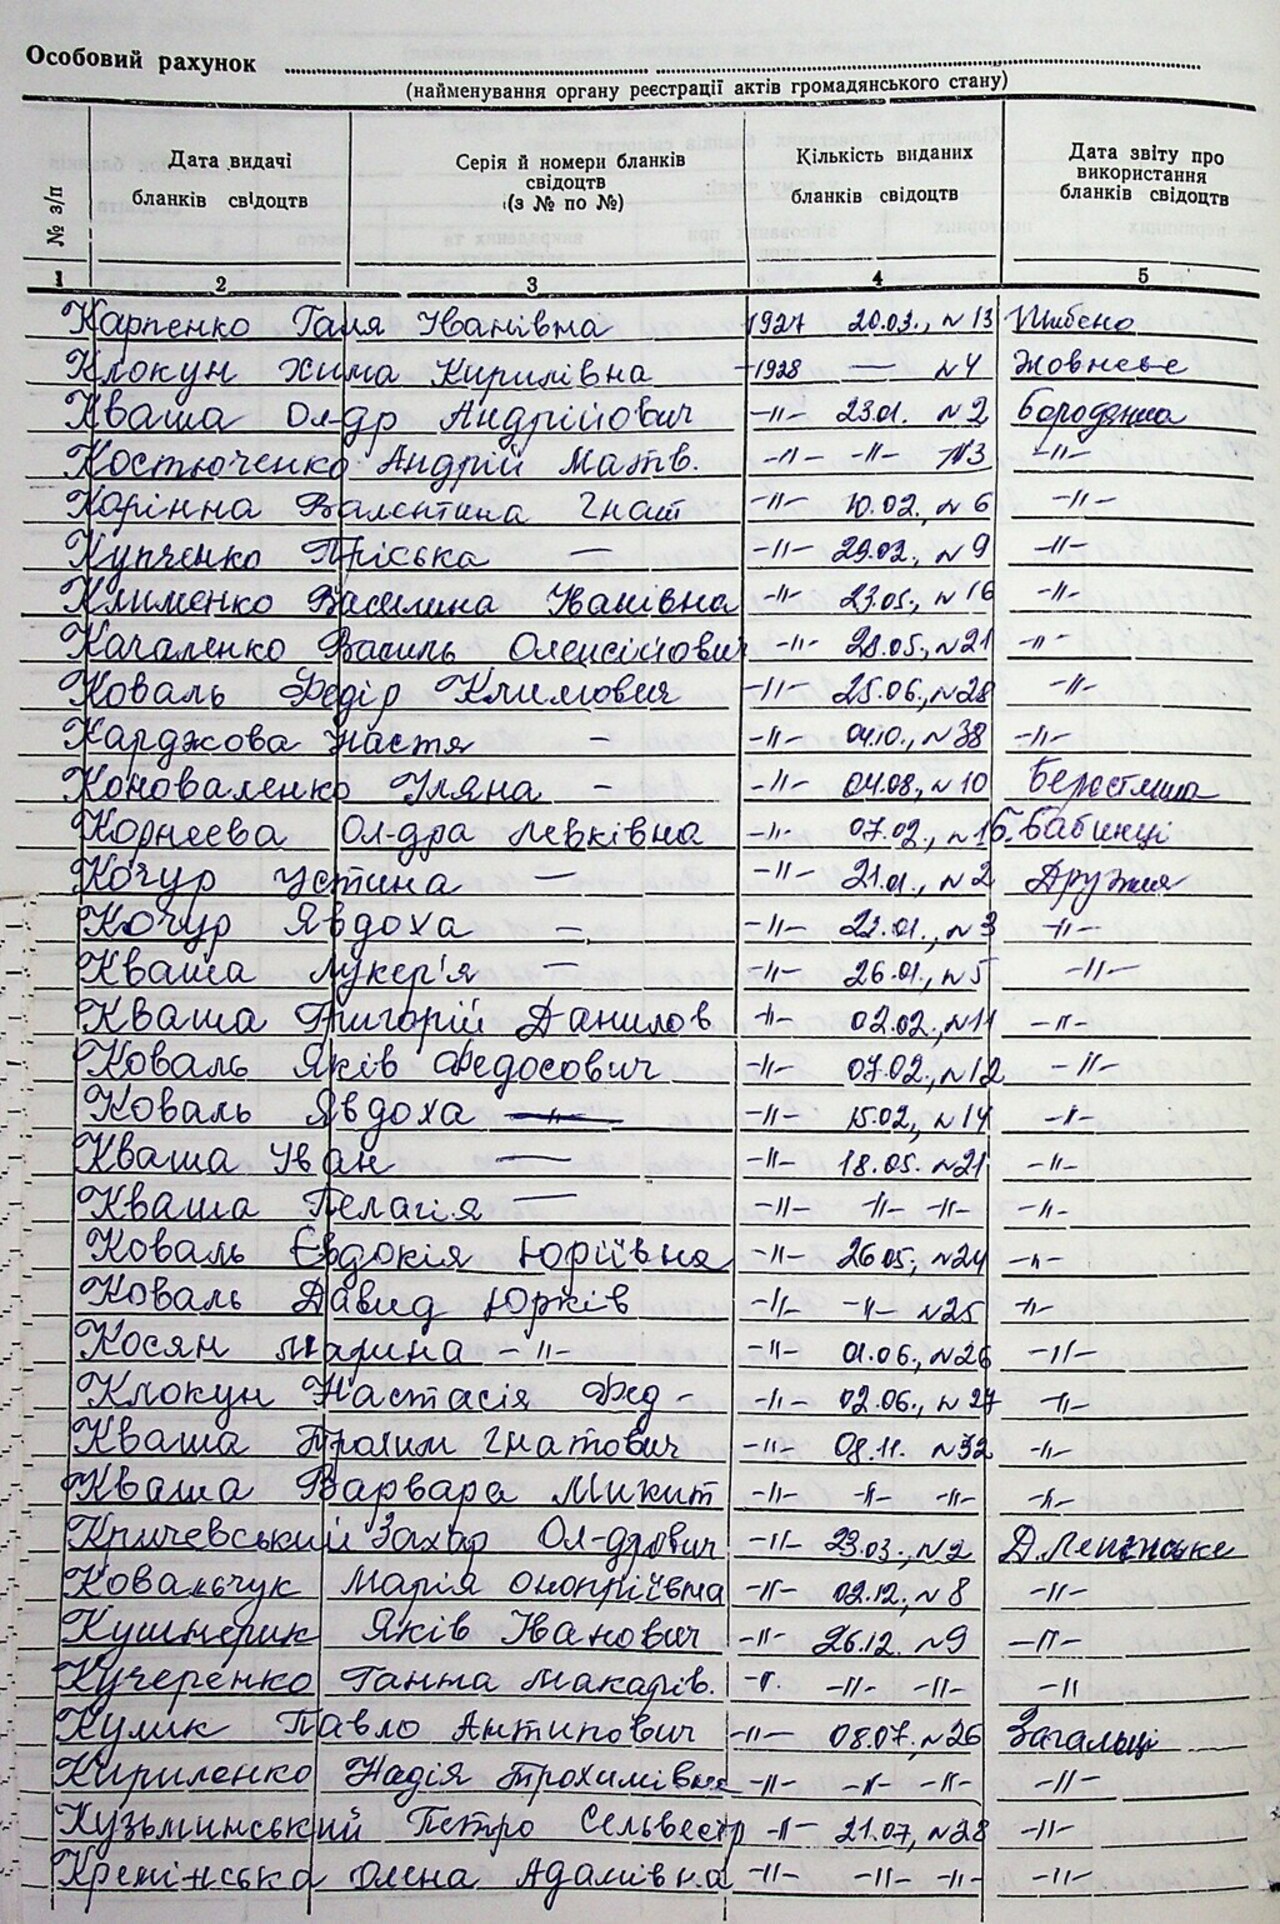 Особовий рахунок
(найменування органу реєстрації актів громадянського стану)
№ з/п
Дата видачі бланків свідоцтв
Серія й номери бланків свідоцтв (з № по №)
Кількість виданих бланків свідоцтв
Дата звіту про використання бланків свідоцтв
1 2 3 4 5
Карпенко Галя Іванівна 1927 20.03., №13 Шибено
Клокун Хима Кирилівна 1928 — №4 Жовнєве
Кваша Ол-др Андрійович -"- 23.01. №2 Бородянка
Костюченко Андрій Матв. -"- -"- №3 -"-
Корінна Валентина Гнат -"- 10.02., №6 -"-
Купченко Пріська — -"- 29.02., №9 -"-
Клименко Василина Іванівна -"- 23.05., №16 -"-
Качаленко Василь Олексійович -"- 28.05., №21 -"-
Коваль Федір Климович -"- 25.06., №28 -"-
Карджова Настя — -"- 04.10., №38 -"-
Коноваленко Уляна — -"- 04.08., №10 Берестянка
Корнєєва Ол-дра Левківна -"- 07.02., №16. Бабинці
Кочур Устина — -"- 21.01., №2 Дружня
Кочур Явдоха — -"- 22.01., №3 -"-
Кваша Лукер'я — -"- 26.01., №5 -"-
Кваша Григорій Данилов -"- 02.02., №11 -"-
Коваль Яків Федосович -"- 07.02., №12 -"-
Коваль Явдоха — -"- 15.02., №14 -"-
Кваша Іван — -"- 18.05. №21 -"-
Кваша Пелагія — -"- -"- -"- -"-
Коваль Євдокія Юріївна -"- 26.05., №24 -"-
Коваль Давид Юрків -"- -"- №25 -"-
Косян Марина -"- -"- 01.06., №26 -"-
Клокун Настасія Фед - -"- 02.06., №27 -"-
Кваша Трохим Гнатович -"- 08.11. №32 -"-
Кваша Варвара Микит -"- -"- -"- -"-
Кричевський Захар Ол-дрович -"- 23.03., №2 Д. Ленінське
Ковальчук Марія Онопріївна -"- 02.12., №8 -"-
Кушнерик Яків Іванович -"- 26.12. №9 -"-
Кучеренко Ганна Макарів. -"- -"- -"- -"-
Кулик Павло Антипович -"- 08.07., №26 Загальці
Кириленко Надія Трохимівна -"- -"- -"- -"-
Кузьминський Петро Сельвестр -"- 21.07, №28 -"-
Кремінська Олена Адамівна -"- -"- -"- -"-